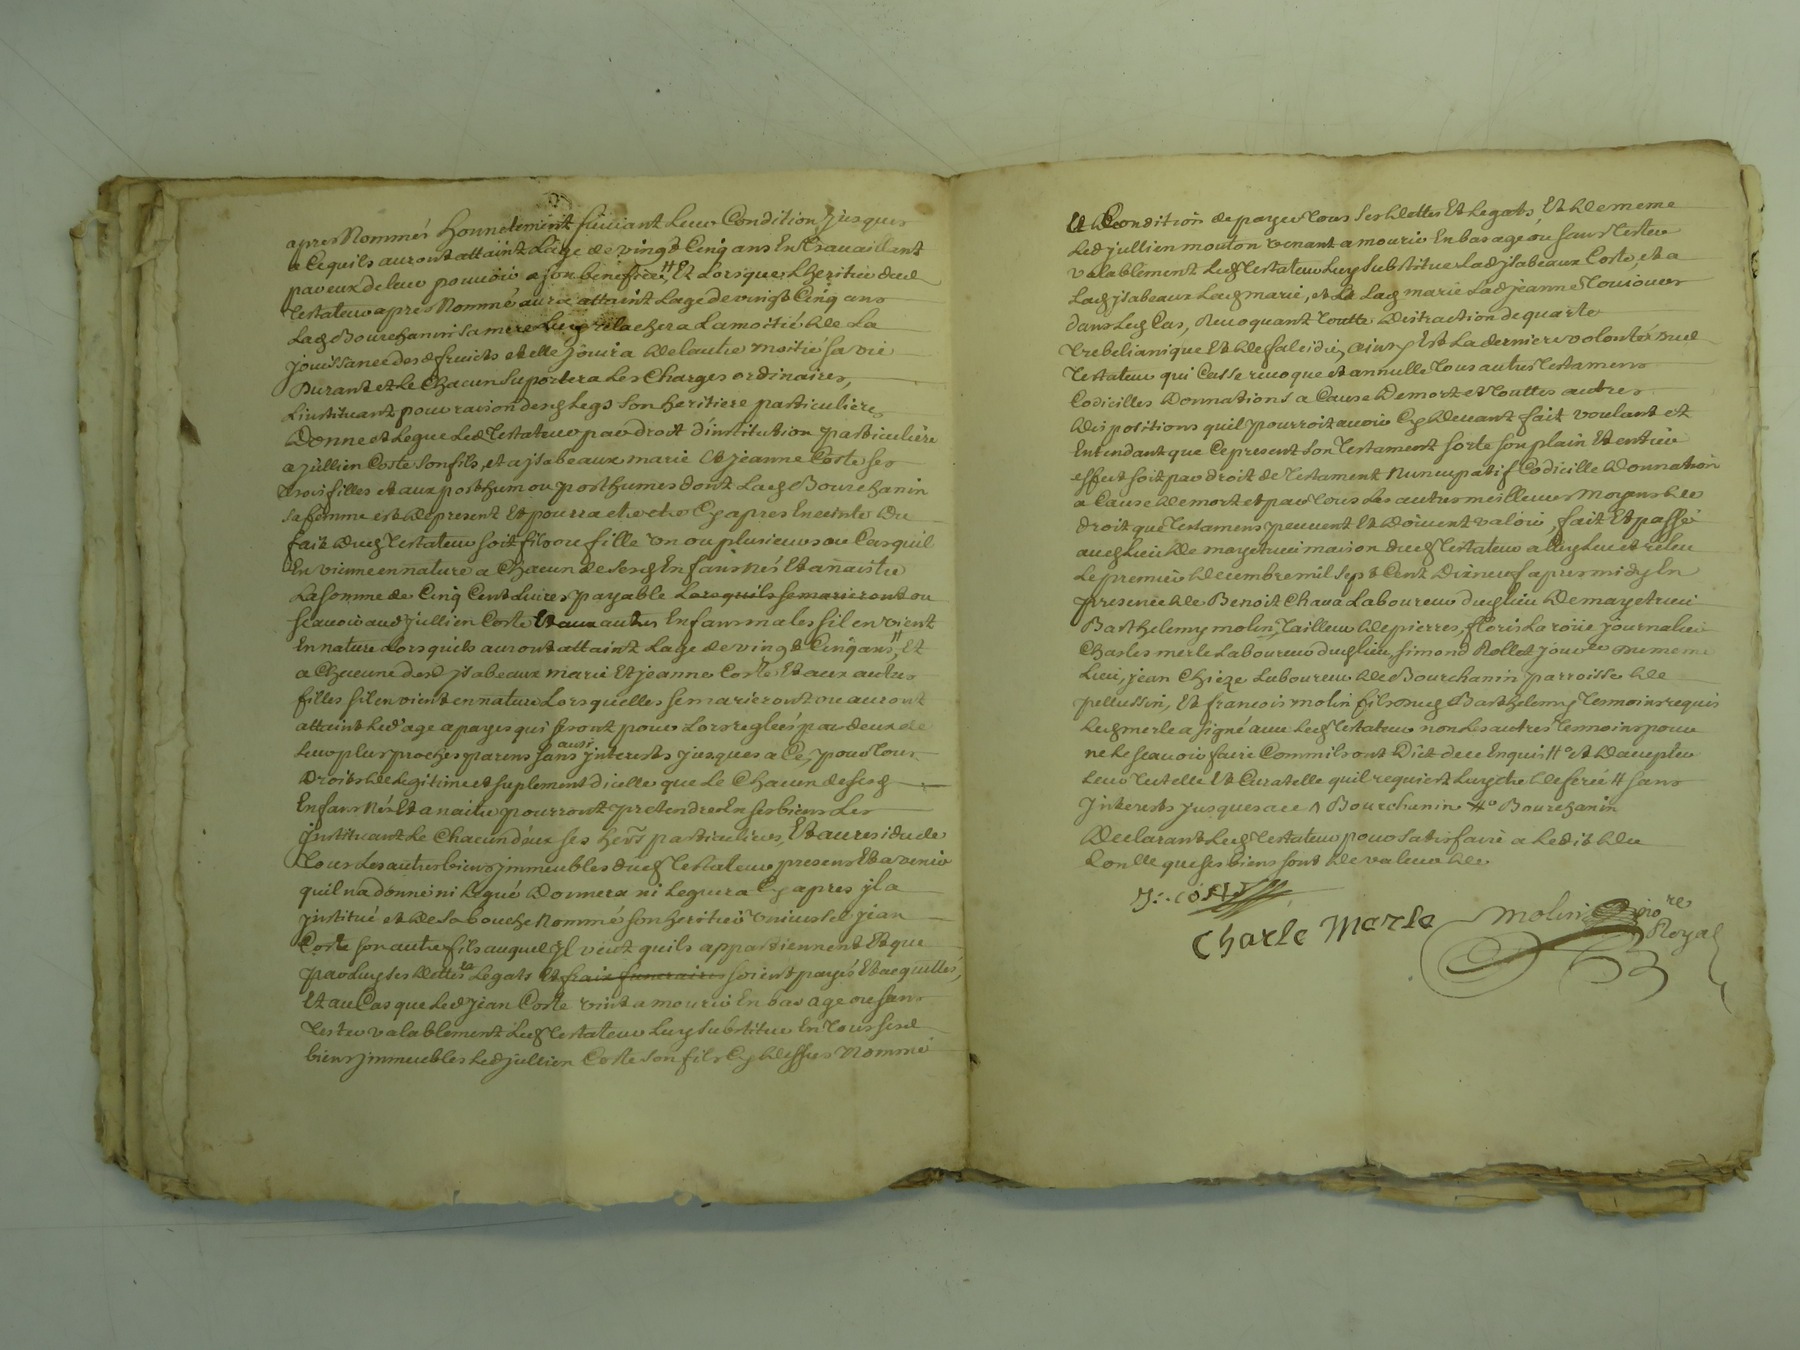 apres Nommés honnetement suivant leur Condition jusques
a Cequils auront attaint Lâge de vingt Cinq ans En travaillant
par eux de leur pouvoir a son benefice, Et Lorsque Lheritier dud
Testateur apres Nommé aura attaint Lage de vingt Cinq ans
Lad Bourchanin sa mere Luy relachera La moitié de La
jouissance desd fruicts et elle jouira de lautre moitié sa vie
Durant et Le Chacun suportera Les Charges ordinaires,
Linstituant pour raison desd Legs son heritiere particuliere,
Donne et Legue Led Testateur par droit d'institution particuliere
a jullien Coste son fils, et a jsabeaux marie Et jeanne Coste ses
trois filles et aux posthum ou posthumes dont Lad Bourchanin
sa femme est de present Et pourra etre Cy apres Enceinte Du
fait dud Testateur soit fils ou fille un ou plusieurs au Cas quil
En vienne en nature a Chacun de sesd Enfans Nés Et a naistre
La somme de Cinq Cent Livres payable Lorsquils se marieront ou
scavoir aud jullien Coste Et aux autres Enfans males sil en vient
En nature Lorsquils auront attaint Lage de vingt Cinq ans, Et
a Chacune desd jsabeaux marie Et jeanne Coste Et aux autres
filles sil en vient en nature Lorsquelles se marieront ou auront
attaint Led age a payes qui seront pour Lors reglées par deux de
Leur plus proches parens sans aussi jnterests jusques a Ce, pour tous
Droits de Legitime et suplement dicelle que Le Chacun de sesd
Enfans Nés Et a naitre pourront pretendre En ses biens Les
jnstituant Le Chacun d'eux ses hers particuliers, Et au residu de
Tous Les autres biens jmmeubles dud Testateur presens Et a venir
quil na donné ni Legué donnera ni leguera Cy apres jl a
jnstitué et de sa bouche Nommé son heritier universel jean
Coste son autre fils auquel jl veut quils appartiennent Et que
par Luy ses dettes et Legats et frais funeraires soient payés Et acquittés,
Et au Cas que Led jean Coste vint a mourir En bas age ou sans
Tester valablement Led Testateur Luy substitue En tous sesd
biens jmmeubles Led jullien Coste son fils Cy dessus Nommé
Et Condition de payer tous ses dettes Et Legats, Et de meme
Led jullien mouton venant a mourir En bas age ou sans tester
valablement Led Testateur Luy substitue Lad jsabeaux Coste, et a
Lad jsabeaux Lad marie, et a Lad marie Lad jeanne toujours
dans Lesd Cas, Revoquant toutte distraction de quarte
trebelianique Et de falcidie, ainsy Est La derniere volonté dud
Testateur qui Casse revoque et annulle tous autres testamens
Codicilles donnations a Cause de mort et touttes autres
dispositions quil pourroit avoir Cy devant fait voulant et
Entendant que Ce present son Testament sorte son plain Et entier
effect soit par droit de Testament Nuncupatif Codicille donnation
a Cause de mort et par tous Les autres meilleurs Moyens de
droit que testamens peuvent Et doivent valoir, fait Et passé
aud Lieu de mayetrieu maison dud Testateur a Luy Leu et releu
Le premier decembre mil sept Cent Dixneuf apres midy En
presence de Benoit Chava Laboureur dud Lieu de mayetrieu
Barthelemy molin, Tailleur de pierres, floris La roüe journalier
Charles merle Laboureur dud Lieu, simond Rollet jour er du meme
Lieu, jean Chieze Laboureur de Bourchanin parroisse de
pellussin, Et francois molin fils dud Barthelemy Temoins requis
Led merle a signé avec Led Testateur non Les autres temoins pour
ne Le scavoir faire Comm ils ont Dit de ce Enquis # et d'accepter
Leur Tutelle Et Curatelle quil requiert Luy etre deferée # sans
jnterests jusques a ce ^ Bourchanin #o Bourchanin
Declarant Led Testateur pour satisfaire a Ledit du
Conlle que ses biens sont de valeur de
J: COSTE
Charle Marle
Molin no re
Royal